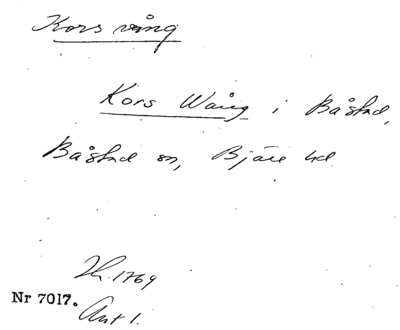 Kors vång
Kors Wång i Båstad,
Båstad sn, Bjäre hd
1769
Nr 7017.
Akt 1.